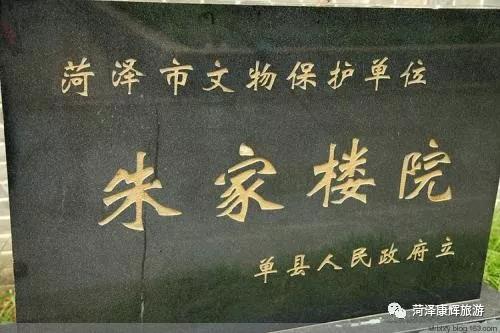 菏泽市文物保护单位
朱家楼院
单县人民政府立
菏泽康辉旅游